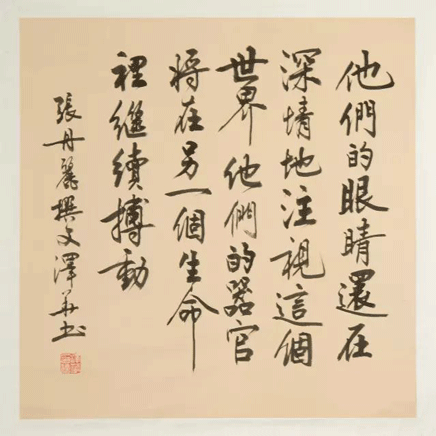 他們的眼睛還在
深情地注視這個
世界他們的器官
將在另一個生命
裡繼續搏動
張丹麗撰文澤華書